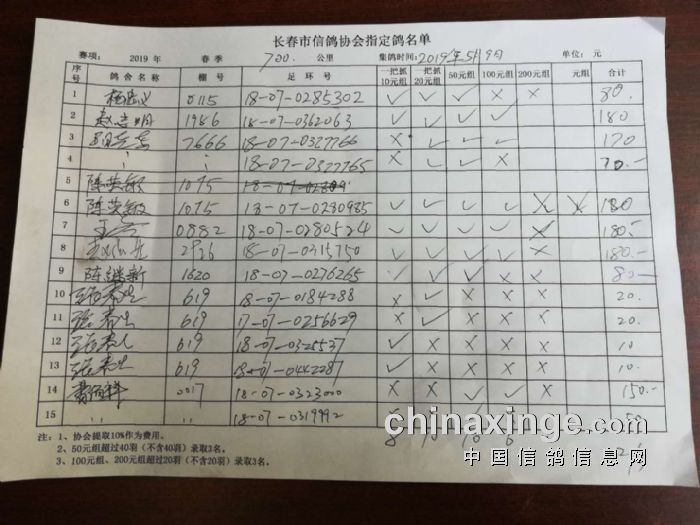 长春市信鸽协会指定鸽名单
赛项: 2019 年 春季 700. 公里 集鸽时间: 2019年5月9日 单位: 元
序号 鸽舍名称 棚号 足环号 一把抓10元组 一把抓20元组 50元组 100元组 200元组 元组 合计
1 0115 18-07-0285302 ✓ ✓ ✓ × × 80.
2 1986 18-07-0362063 ✓ ✓ ✓ ✓ 180
3 7666 18-07-0327766 × ✓ ✓ ✓ 170
4 18-07-0327765 × ✓ ✓ × 70.-
5 陈英敏 1075
6 陈英敏 1075 18-07-0280985 ✓ ✓ ✓ ✓ × × 180
7 0882 18-07-0280524 ✓ ✓ ✓ ✓ × 180.-
8 18-07-0315750 ✓ ✓ ✓ ✓ × 180.-
9 陈继新 1620 18-07-0276265 ✓ ✓ ✓ × × 80.-
10 619 18-07-0184288 × ✓ × × × 20.
11 619 17-07-0256629 × ✓ × × × 20.
12 619 18-07-0325537 ✓ × × × × 10.
13 619 18-07-0442287 ✓ × × × × 10.
14 0017 18-07-0323000 × × ✓ ✓ × 150.-
15 〃 18-07-0319992 50.
8 10 10 6
注: 1、协会提取10%作为费用。
2、50元组超过40羽 (不含40羽) 录取3名。
3、100元组、200元组超过20羽 (不含20羽) 录取3名。
chinaxinge.com
中国信鸽信息网